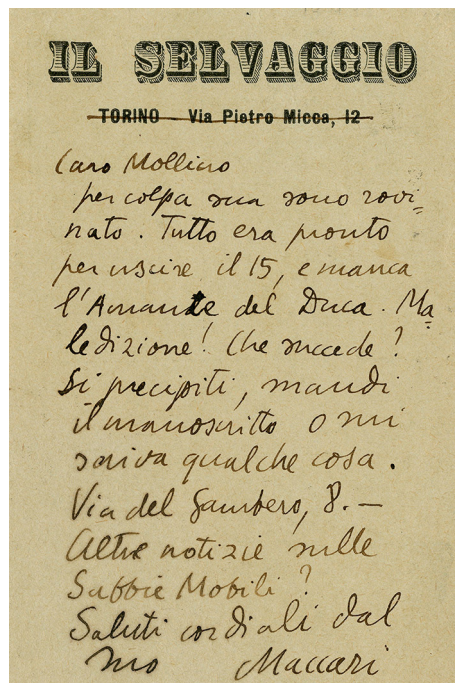 IL SELVAGGIO
TORINO - Via Pietro Micca, 12
Caro Mollino
per colpa sua sono rovi=
nato. Tutto era pronto
per uscire il 15, e manca
l'Amante del Duca. Ma=
ledizione! Che succede?
Si precipiti, mandi
il manoscritto o mi
scriva qualche cosa.
Via del Gambero, 8. —
Altre notizie sulle
Sabbie Mobili?
Saluti cordiali dal
suo Maccari